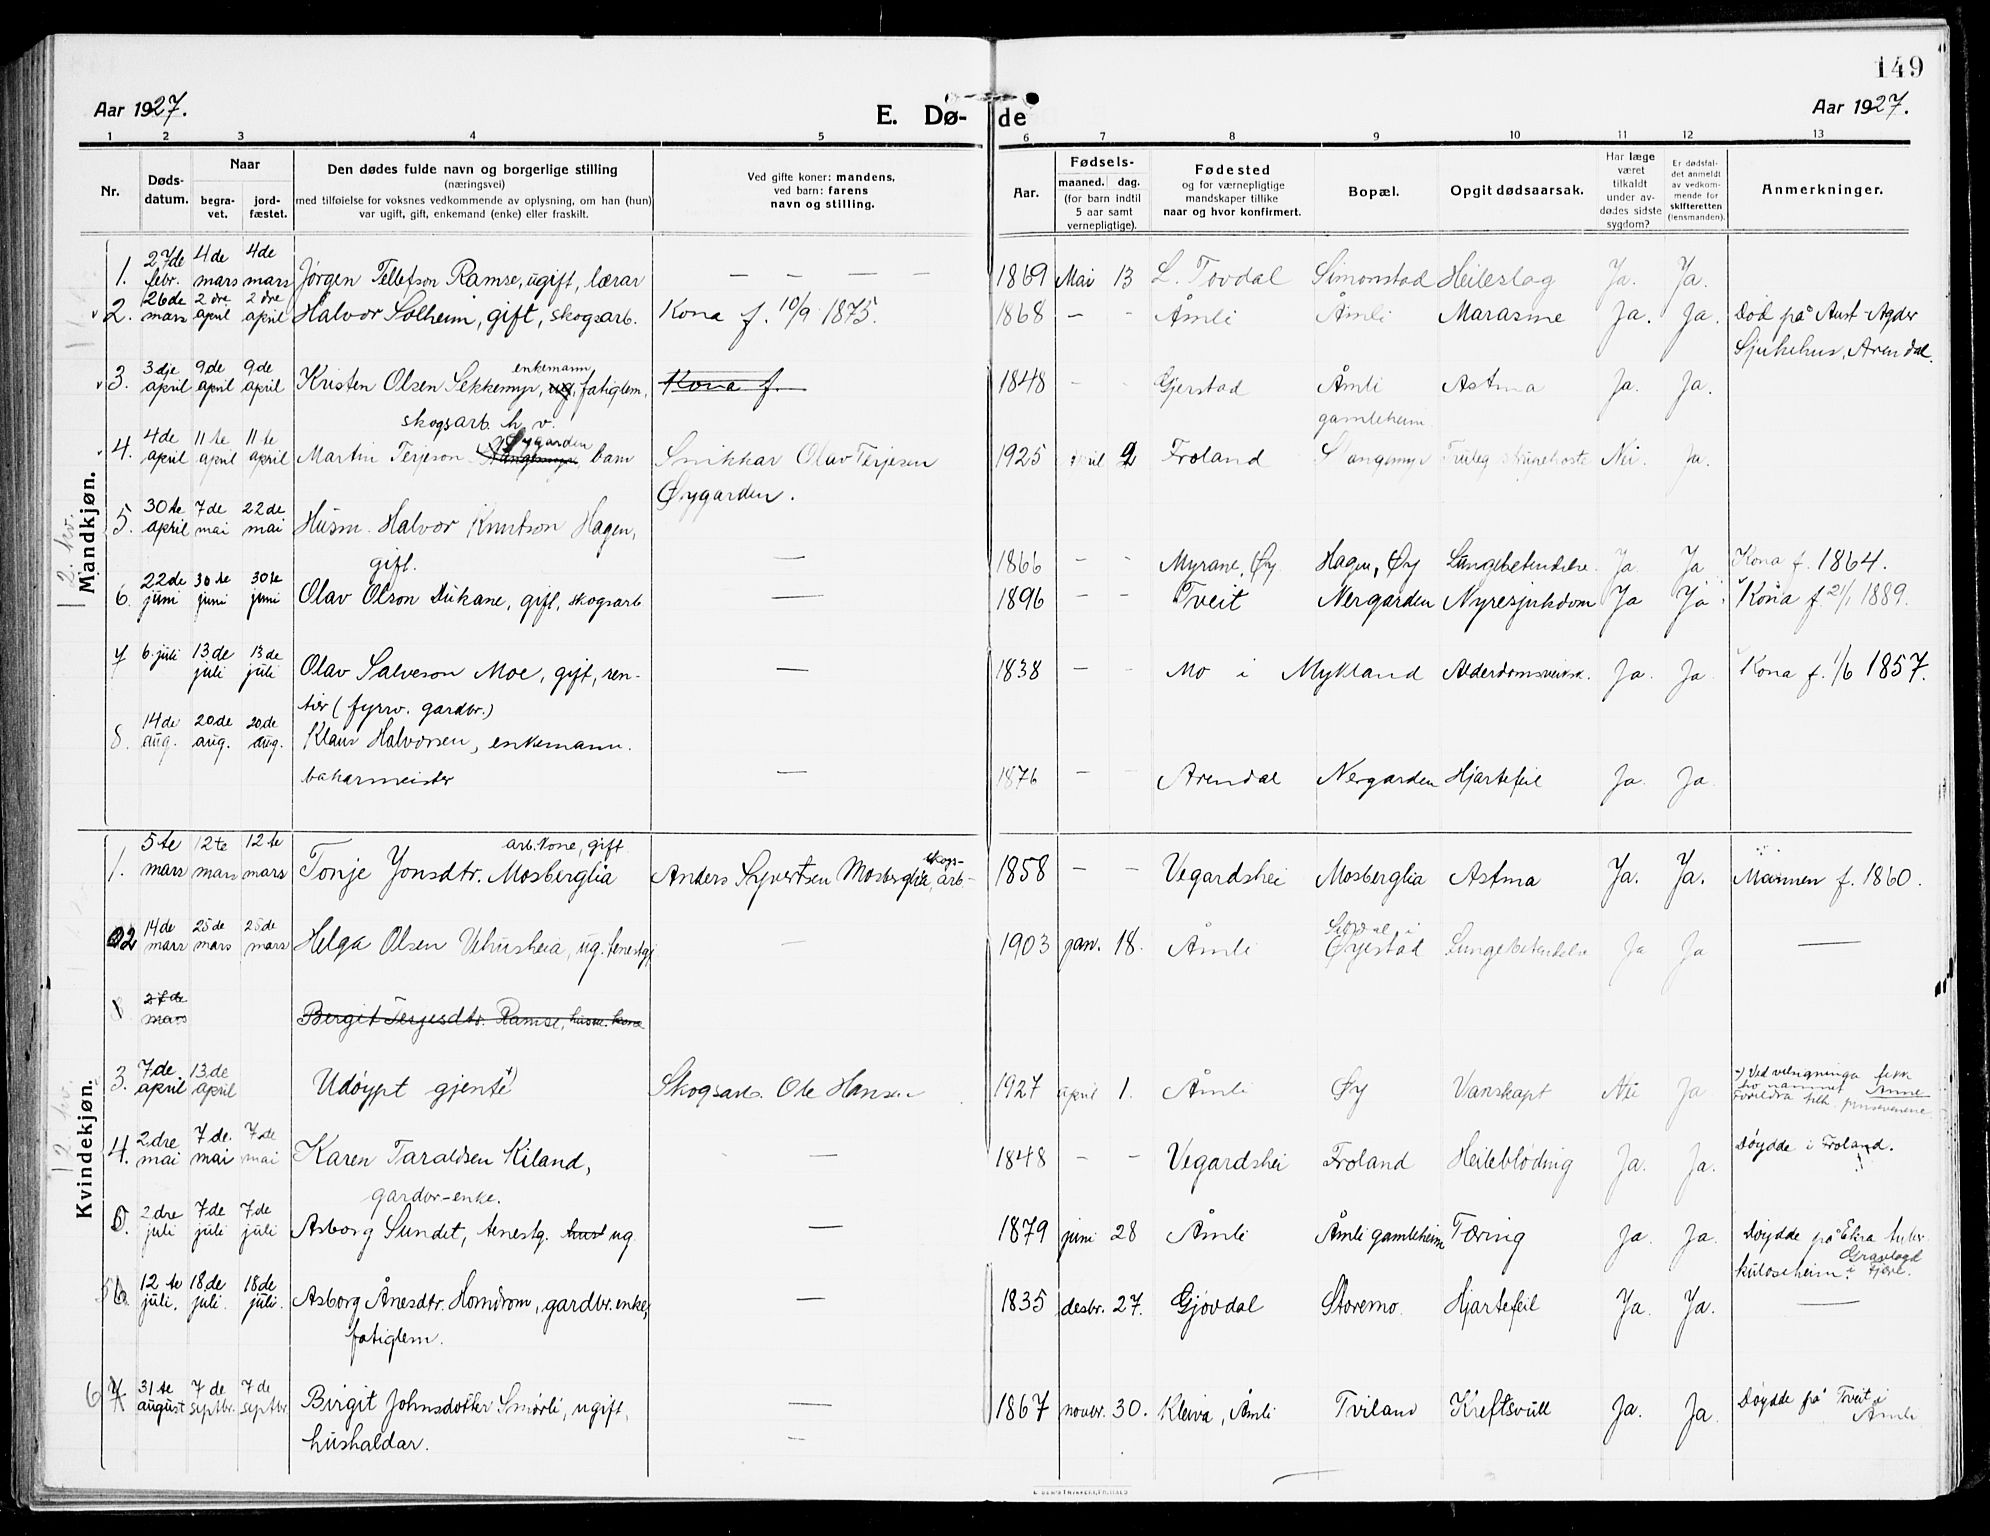 149
Aar 1927.
E. Dø-
de
Aar 1927.
1 2 3 4 5 6 7 8 9 10 11 12 13
Nr.
Døds-
datum.
Naar
begra-
vet.
jord-
fæstet.
Den dødes fulde navn og borgerlige stilling
(næringsvei)
med tilføielse for voksnes vedkommende av oplysning, om han (hun)
var ugift, gift, enkemand (enke) eller fraskilt.
Ved gifte koner: mandens,
ved barn: farens
navn og stilling.
Aar.
Fødsels-
maaned. dag.
(for barn indtil
5 aar samt
vernepligtige).
Fødested
og for værnepligtige
mandskaper tillike
naar og hvor konfirmert.
Bopæl.
Opgit dødsaarsak.
Har læge
været
tilkaldt
under av-
dødes sidste
sygdom?
Er dødsfal-
det anmeldt
av vedkom-
mende for
skifteretten
(lensmanden).
Anmerkninger.
Mandkjøn.
1. 27de febr. 4de mars 4de mars Jørgen Tellefson Ramse, ugift, lærar — — — — 1869 Mai 13 L. Tovdal Simonstad Heileslag Ja. Ja.
2. 26de mars 2dre april 2dre april Halvor Solheim, gift, skogsarb. Kona f. 10/9 1875. 1868 – – Åmli Åmli Marasme Ja. Ja. Død på Aust-Agder
Sjukehus, Arendal.
3. 3dje april 9de april 9de april Kristen Olsen Sekkemyr, ug. enkemann, fatiglem, Kona f. 1848 – – Gjerstad Åmli Astma Ja. Ja.
skogsarb. h. v. gamleheim
4. 4de april 11te april 11te april Martin Terjeson Øygarden barn Snikkar Olav Terjesen 1925 april 2 Froland Stangemyr Nei. Ja.
Øygarden.
5. 30te april 7de mai 22de mai Husm. Halvor Knutson Hagen,
gift. — 1866 – – Myrane, Øy Hagen, Øy Lungebetendelse Ja Ja Kona f. 1864.
6. 22de juni 30te juni 30te juni Olav Olson Dukane, gift, skogsarb 1896 – – Tveit Nergarden Nyresjukdom Ja Ja Kona f. 21/1 1889.
7 6. juli 13de juli 13de juli Olav Salveson Moe, gift, ren- — 1838 – – Mo i Mykland Alderdomsveiksk. Ja. Ja. Kona f. 1/6 1857.
tier (fyrrv. gardbr.)
8. 14de aug. 20de aug. 20de aug. Klaus Halvorsen, enkemann.
bakarmeister — 1876 – – Arendal Nergarden Hjartefeil Ja. Ja.
Kvindekjøn.
1. 5te mars 12te mars 12te mars Tonje Jonsdtr. Mosberglia arb.kone, gift Anders Syvertsen Mosberglia, skogs-arb- 1858 – – Vegardshei Mosberglia Astma Ja. Ja. Mannen f. 1860.
2 14de mars 25de mars 25de mars Helga Olsen Vehusheia, ug. tenestgj — 1903 jan. 18. Åmli Øyestad Lungebetendelse Ja Ja —
27de mars Bergit Terjesdtr. Ramse, husm. kone
3. 7de april 13de april Udøypt gjente +) Skogsarb. Ole Hansen 1927 april 1. Åmli Øy Vanskapt Nei Ja +) Ved vigninga fekk
ho namnet Anne
4. 2dre mai 7de. mai 7de mai Karen Taraldsen Kiland, — 1848 – – Vegardshei Froland Heilebløding Ja. Ja. Døydde i Froland.
gardbr-enke.
5. 2dre juli 7de juli 7de juli Asborg Sundet, tenestg. hust ug — 1879 juni 28 Åmli Åmli gamleheim Tæring Ja. Ja. Døydde på Ekra tuber-
kuloseheim. Gravlagd i Fjære.
6. 12te juli. 18de juli. 18de juli. Asborg Ånesdtr. Homdrom, gardbr. enke, — 1835 desbr. 27. Gjøvdal Storemo. Hjartefeil Ja. Ja. —
fatiglem.
6 7 31te august 7de septbr. 7de septbr. Birgit Johnsdotter Smørli, ugift, — 1867 novbr. 30. Kleiva, Åmli Tviland Kreftsvull Ja. Ja. Døydde på Tveit i
Åmli
hushaldar.